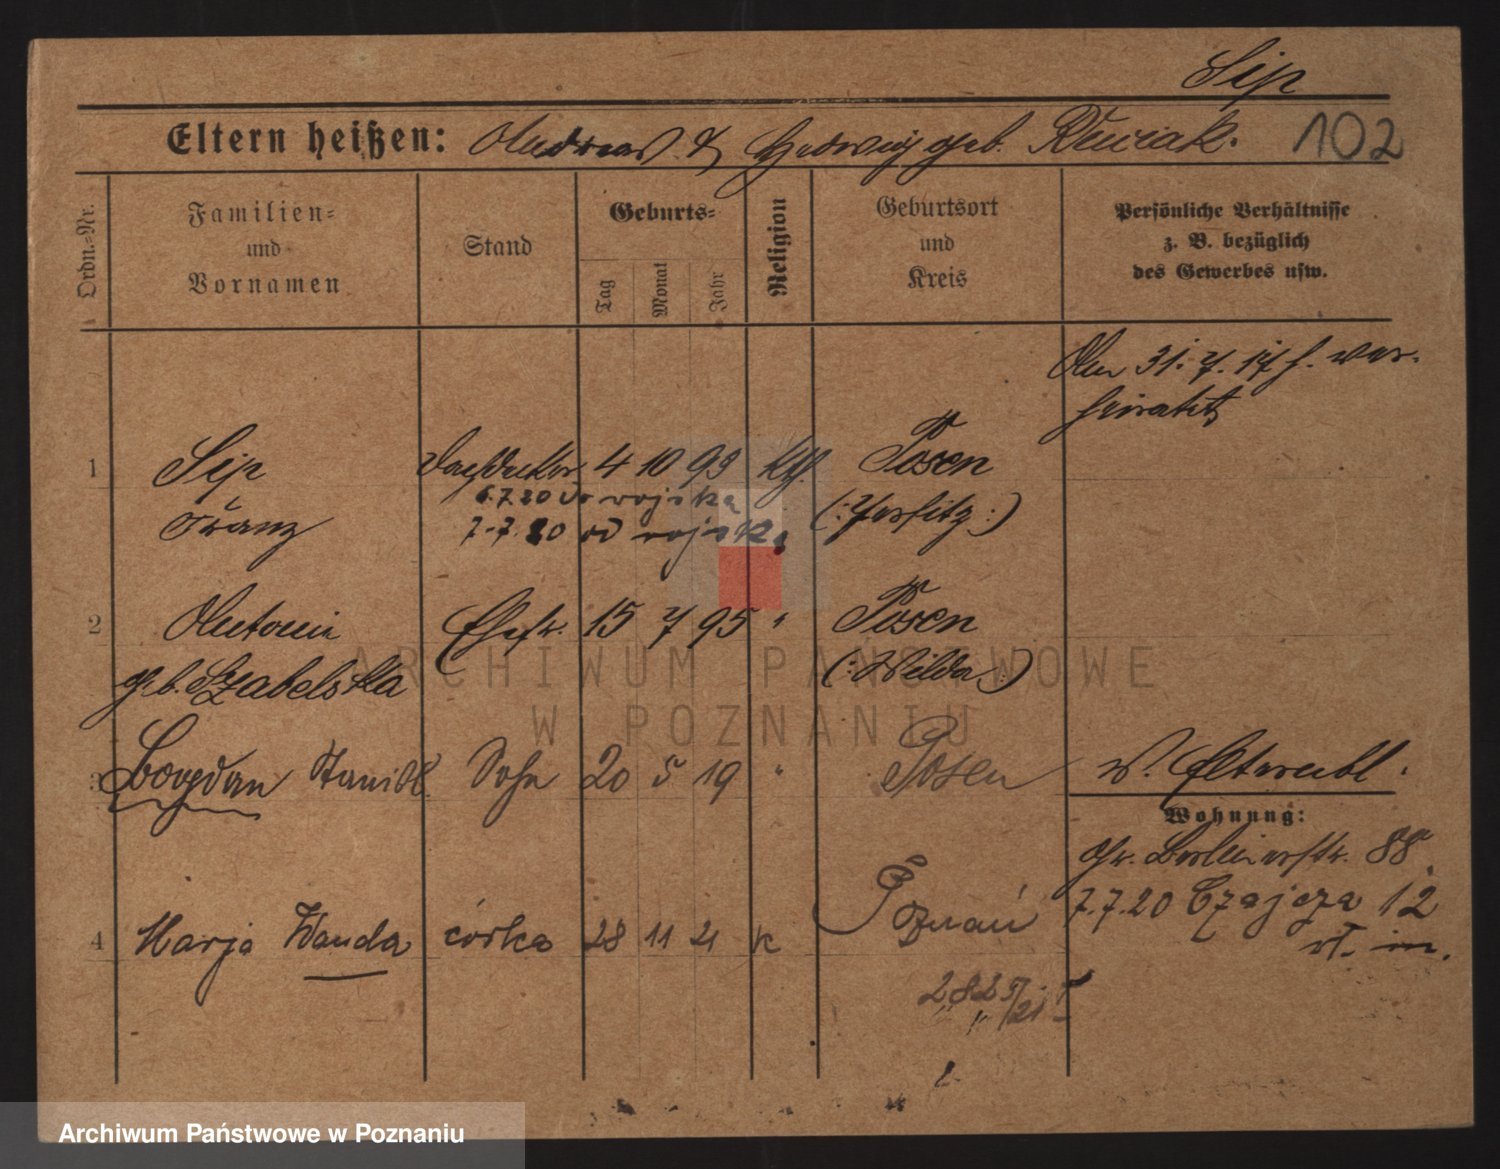 Sip
Eltern heißen: Andreas & Hedwig geb. 102
Ordn.=Nr.
Familien=
und
Vornamen
Stand
Geburts=
Tag
Monat
Jahr
Religion
Geburtsort
und
Kreis
Persönliche Verhältnisse
z. B. bezüglich
des Gewerbes usw.
31. 7. 17 h. ver-
heiratet
1 Sip 4 10 93 kth. Posen
6.7.20 do wojska
Franz (:Jersitz:)
7.7.20 od wojska
2 Antonie Ehefr. 15 7 95 " Posen
geb. Szabelska (:Wilda:)
3 Bogdan Stanisl. Sohn 20 5 19 " Posen
Wohnung:
Gr. Berlinerstr. 88.
7.7.20 Czajcza 12
4 Marja Wanda córka 28 11 21 k Poznań
ARCHIWUM PAŃSTWOWE
W POZNANIU
Archiwum Państwowe w Poznaniu